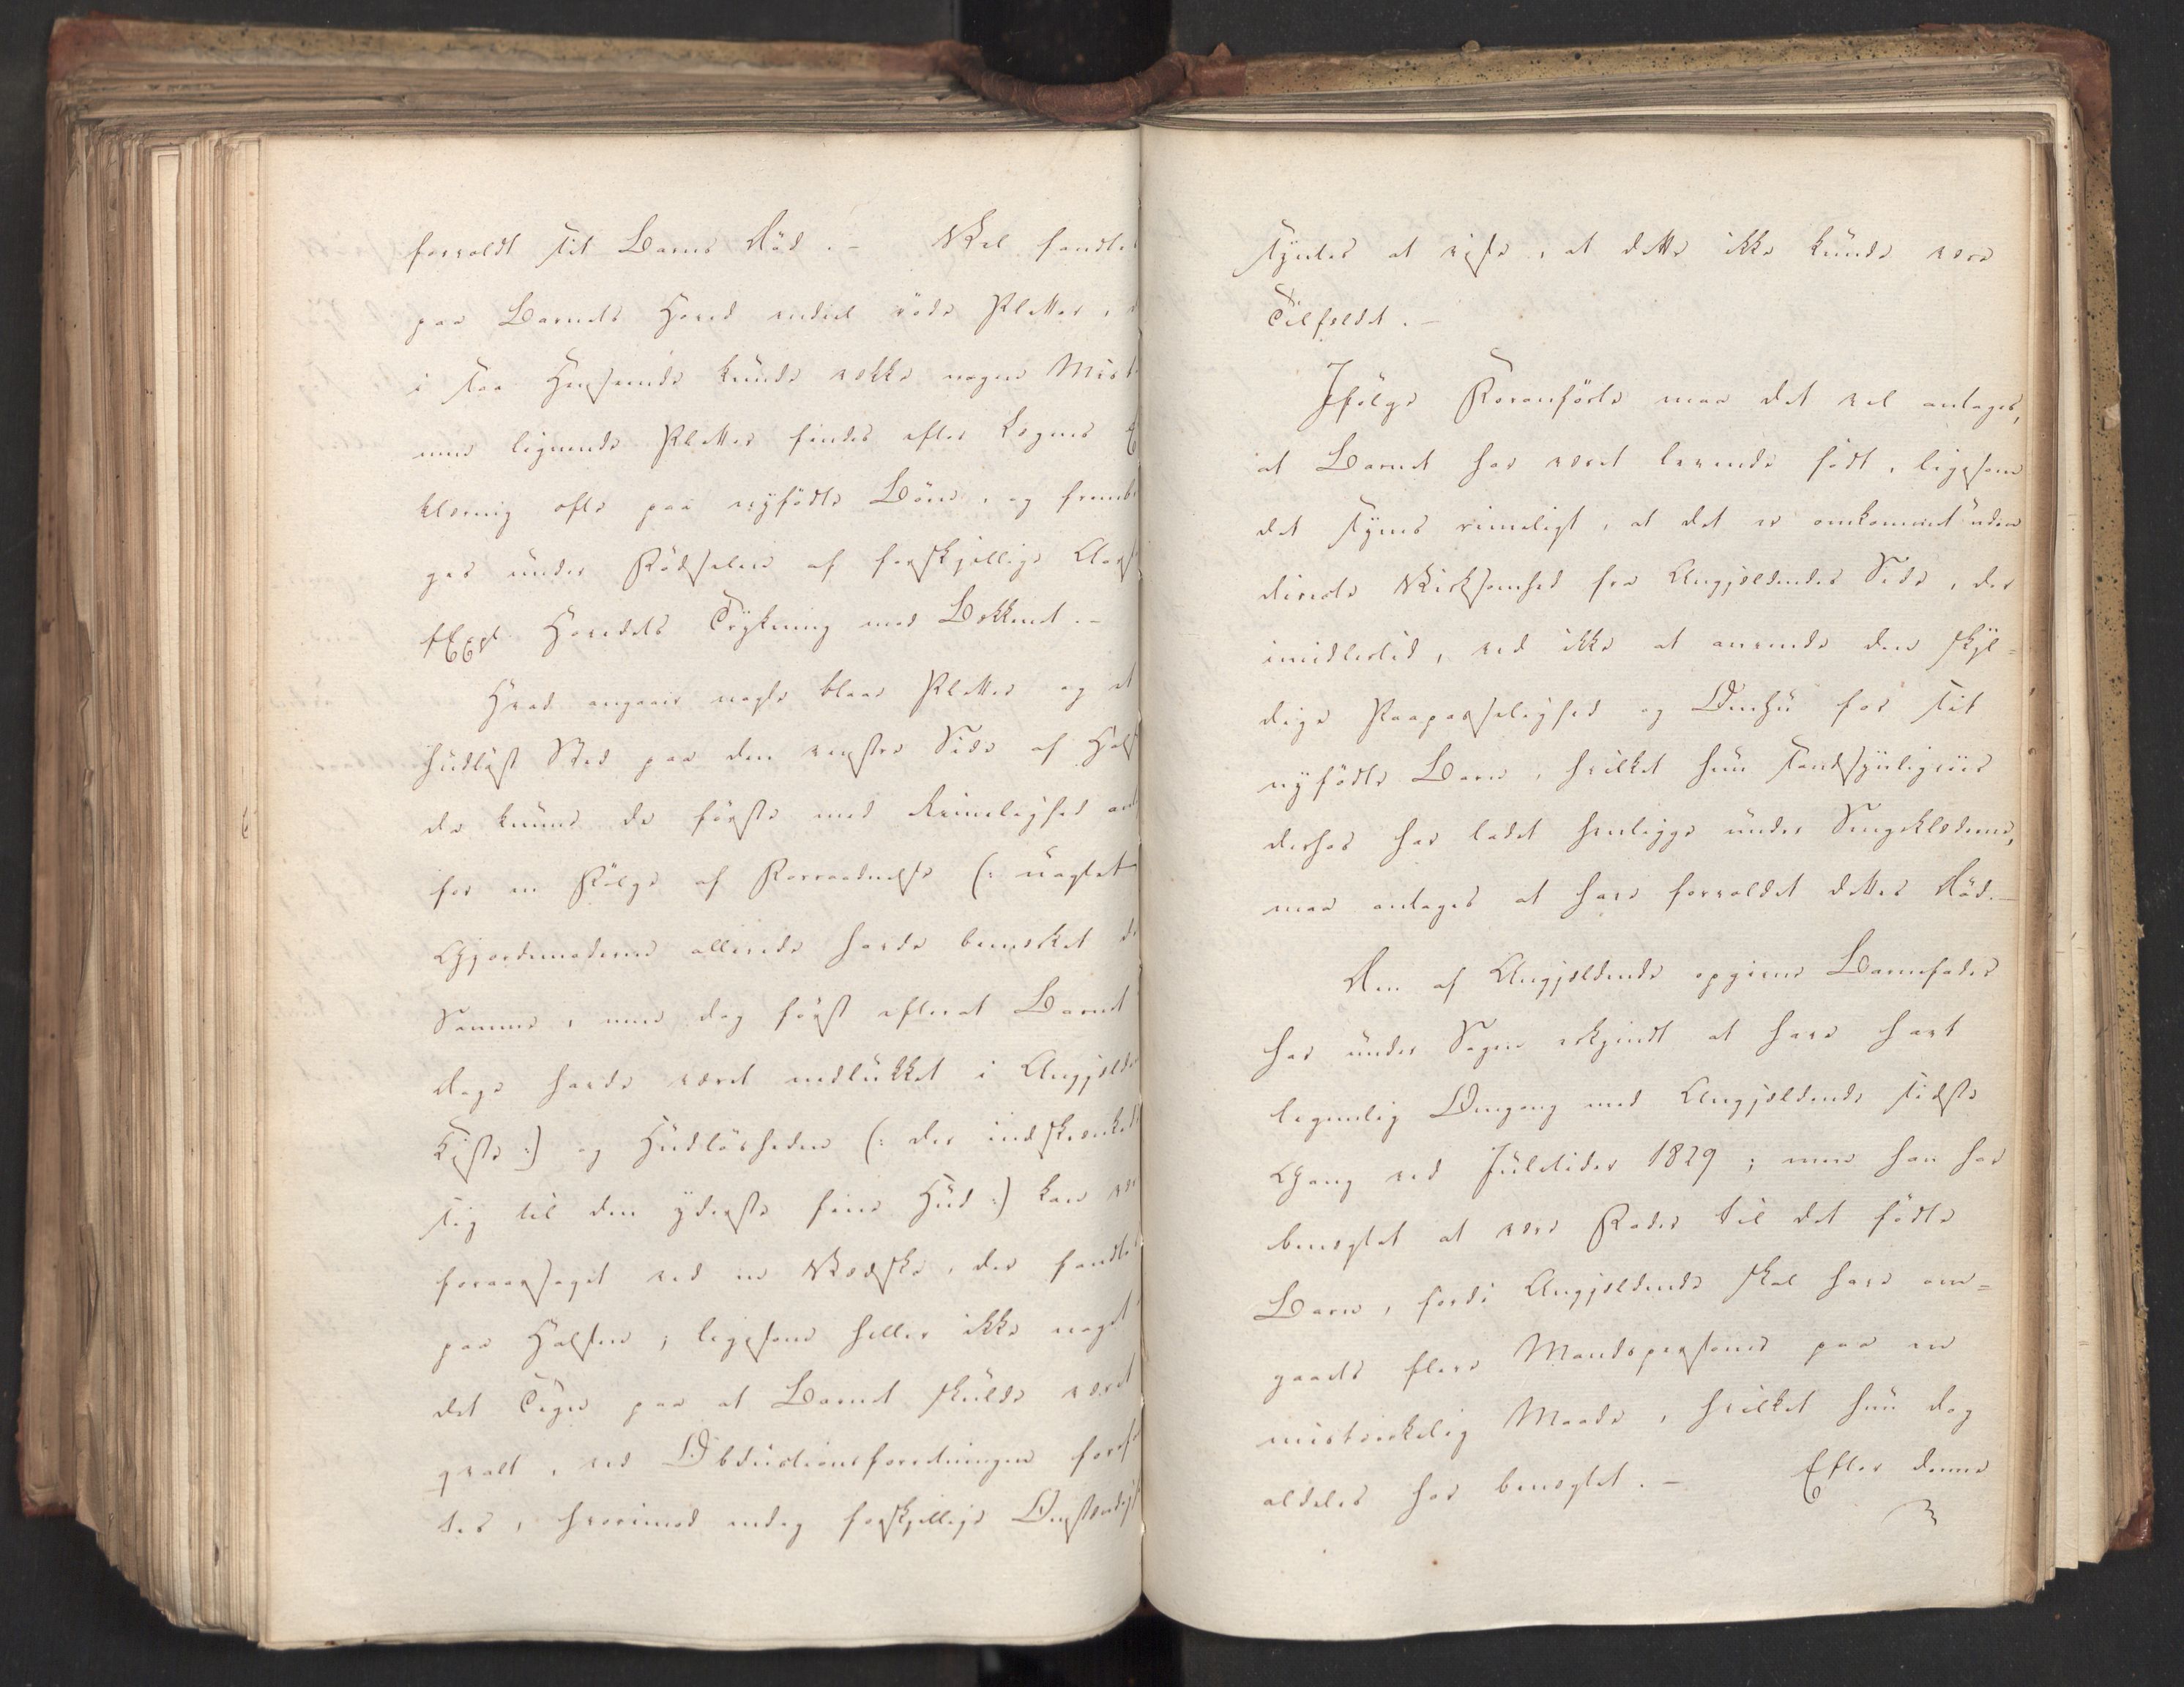 forvoldt sit Barns Død. - Vel fandtes
paa Barnets Hoved endeel røde Pletter,
i saa Henseende kunde vække nogen Mist
men lignende Pletter findes efter Lægens
klæring ofte paa nyfødte Børn, og fremb
ges under Fødselen af forskjellige Aars
f Expl Hovedets Trykning mod Bekkenet. -
Hvad angaaer nogle blaae Pletter og et
hudløst Sted paa den venstre Side af Hals
da kunne de første med Rimelighed an
for en Følge af Forraadnelse (: uagtet
Gjordemoderen allerede havde bemærket
Samme, men dog først efterat Barnet
Dage havde været nedlukket i Angjelde
Kiste :) og Hudløsheden (: der indskrænked
sig til den yderste fine Hud :) kan
foraarsaget ved en Vædske, der fandtes
paa Halsen; ligesom heller ikke noget
det Tegn paa at Barnet skulde været
qvalt, ved Obductionsforretningen foref
tes, hvorimod endog forskjellige Omstændigh
syntes at vise, at dette ikke kunde være
Tilfældet. -
Ifølge Foranførte maa det vel antages,
at Barnet har været levende født, ligesom
det synes rimeligt, at det er omkommet uden
directe Virksomhed fra Angjældendes Side, der
imidlertid, ved ikke at anvende den skyl=
dige Paapasselighed og Omhu for sit
nyfødte Barn, hvilket hun sandsynligviis
derhos har ladet henligge under Sengeklæderne,
maa antages at have forvoldet dettes Død. -
Den af Angjældende opgivne Barnefader
har under Sagen erkjendt at have havt
legemlig Omgang med Angjældende sidste
Gang ved Juletider 1829; men han har
benægtet at være Fader til det fødte
Barn, fordi Angjældende skal have om=
gaaets flere Mandspersoner paa en
mistænkelig Maade, hvilket hun dog
aldeles har benægtet. - Efter denne